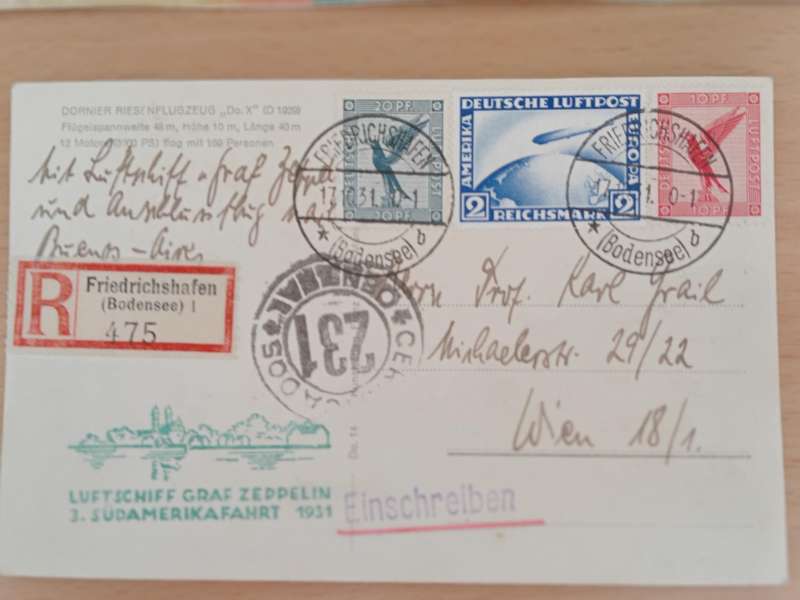 DORNIER RIESENFLUGZEUG „Do. X" (D 1929)
Flügelspannweite 48 m, Höhe 10 m, Länge 40 m
12 Motore PS) flog mit 169 Personen
Mit Luftschiff „Graf Zepp
und Anschlussflug nach
Buenos-Aires
20 PF.
DEUTSCHE LUFTPOST
20 PF
FRIEDRICHSHAFEN
17.10.31. 0-1
* (Bodensee) d
DEUTSCHE LUFTPOST
AMERIKA
EUROPA
2 REICHSMARK 2
10 PF.
DEUTSCHE LUFTPOST
10 PF.
FRIEDRICHSHAFEN
17. 1. 0-1
* (Bodensee) d
R
Friedrichshafen
(Bodensee) 1
475
231
Herrn Prof. Karl Grail
Michaelerstr. 29/22
Wien 18/1.
LUFTSCHIFF GRAF ZEPPELIN
3. SÜDAMERIKAFAHRT 1931
Einschreiben